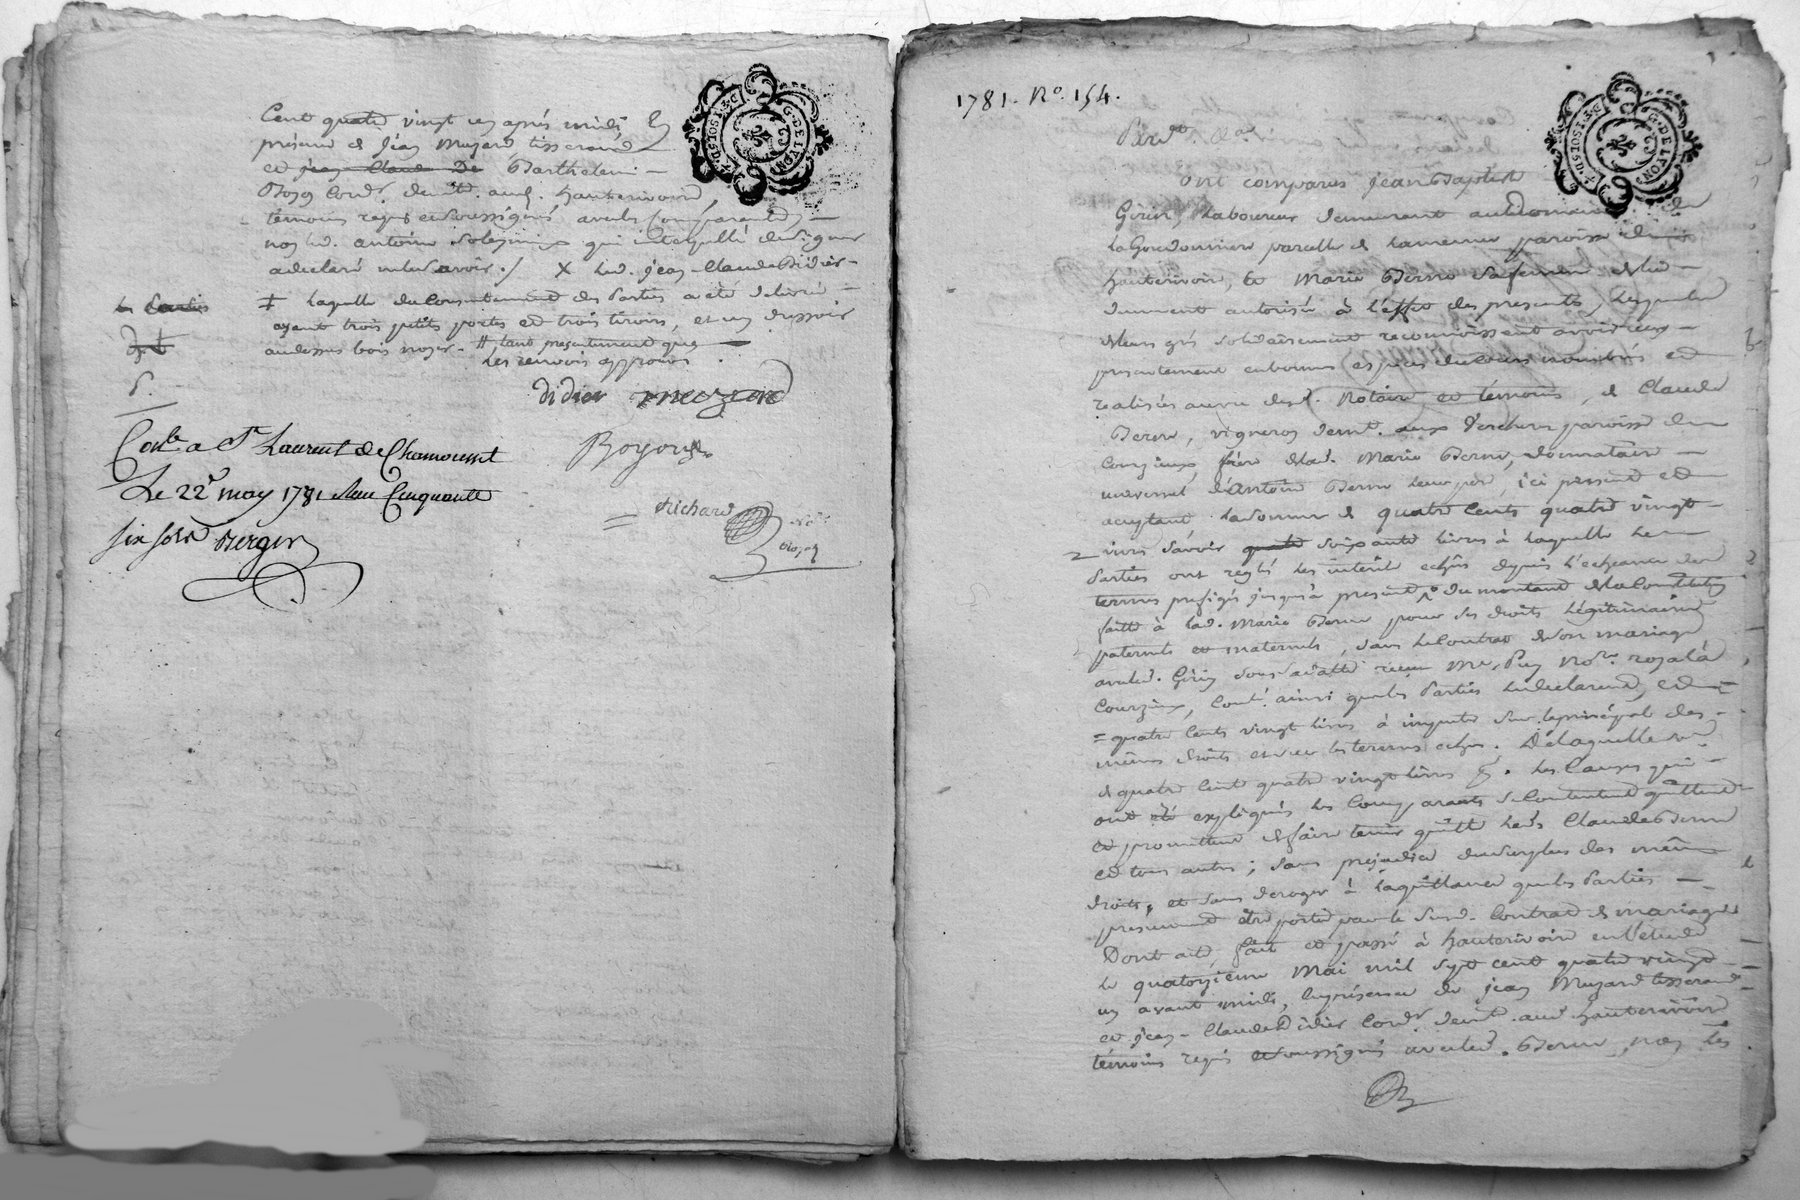 Cent quatre vingt un après midi, En
présence de Jean Muzard tisserand
et jean Claude De Barthelemi
Boyon Cordr. demt. aud. hauterivoire
témoins requis et soussignés avec les Comparants,
non led. antoine qui interpellé de signer
a declaré ne le savoir ./ X led. jean-Claude Didier
les Parties
‡ laquelle du Consentement des Parties a été délivré
ayant trois petits portes et trois tiroirs, et un dressoir
audessus bois noyer - # tant presentement que
les renvois approuvés
D.
Didier Muzard
Boyon
Richard
Not. royal
Colé a St Laurent de Chamousset
Le 22e may 1781 Reçu Cinquante
six sols Berger
G. DE LYON
1781. No. 154.
Pardt.
ont comparus jean Baptiste
Girin, Laboureur demeurant au domaine de
la Goudonniere parcelle de Lamure paroisse de
hauterivoire, et Marie Berne sa femme de lui
dument autorisée à l'effet des presentes, lesquels
de leurs grés solidairement reconnoissent avoir reçu
presentement en bonnes especes du cours nombrés et
realisés au vu desd. Notaire et témoins, de Claude
Berne, vigneron demt. aux Verchere paroisse de
Courzieux frère de lad. Marie Berne, donnataire
universel d'Antoine Berne leur pere, ici present et
acceptant, la somme de quatre Cents quatre vingt
livres savoir quatre soixante livres à laquelle les
Parties ont reglé les interêts echus depuis l'echeance des
termes prefigés jusqu'à present pr. du montant de la Constitution
faitte à lad. Marie Berne pour ses droits légitimaires
paternels et maternels, dans le Contrat de son mariage
avec led. Girin sous sa datte reçu Me. Puy Nore. royal à
Courzieux, Conté. ainsi que les Parties le declarent, et
= quatre Cents vingt livres à imputer sur le principal des
mêmes droits et sur les termes echus. De laquelle somme
de quatre Cent quatre vingt livres pr. les Causes qui
ont été expliqués les Comparants se Contentent quittent
et promettent de faire tenir quitte led. Claude Berne
et tous autres ; sans prejudice du surplus des mêmes
droits, et sans deroger à la quittance que les Parties
presument être portée par le susd. Contrat de mariage
Dont acte, fait et passé à hauterivoire en l'etude
le quatorzieme Mai mil sept cent quatre vingt
un avant midi, En présence de jean Muzard tisserand
et jean-Claude Didier Cordr. demt. aud. hauterivoire
témoins requis et soussignés avec led. Berne, non les